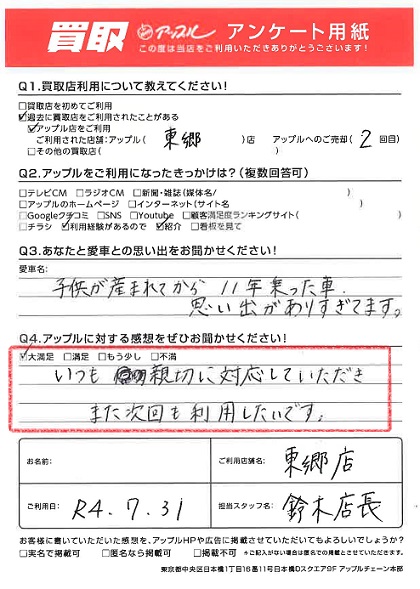 買取 アップル アンケート用紙
この度は当店をご利用いただきありがとうございます！
Q1.買取店利用について教えてください！
□買取店を初めてご利用
☑過去に買取店をご利用されたことがある
☑アップル店をご利用
ご利用された店舗：アップル（ 東郷 ）店 アップルへのご売却（ 2 回目）
□その他の買取店（ ）
Q2.アップルをご利用になったきっかけは？（複数回答可）
□テレビCM □ラジオCM □新聞・雑誌（媒体名/ ）
□アップルのホームページ □インターネット（サイト名 ）
□Googleクチコミ □SNS □Youtube □顧客満足度ランキングサイト（ ）
□チラシ ☑利用経験があるので ☑紹介 □看板を見て
Q3.あなたと愛車との思い出をお聞かせください！
愛車名：
子供が産まれてから 11年乗った車.
思い出がありすぎてます。
Q4.アップルに対する感想をぜひお聞かせください！
☑大満足 □満足 □もう少し □不満
いつも 親切に対応していただき
また次回も利用したいです。
お名前： ご利用店舗名： 東郷店
ご利用日： R4.7.31 担当スタッフ名： 鈴木店長
お客様に書いていただいた感想を、アップルHPや広告に掲載させていただいてもよろしいでしょうか？
□実名で掲載可 □匿名なら掲載可 □掲載不可 ※ご記入がない場合は匿名での掲載とさせていただきます。
東京都中央区日本橋1丁目16番11号日本橋Dスクエア9F アップルチェーン本部